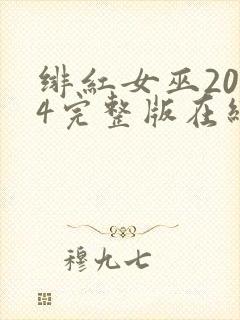 绯红女巫20
4完整版在线
穆九七